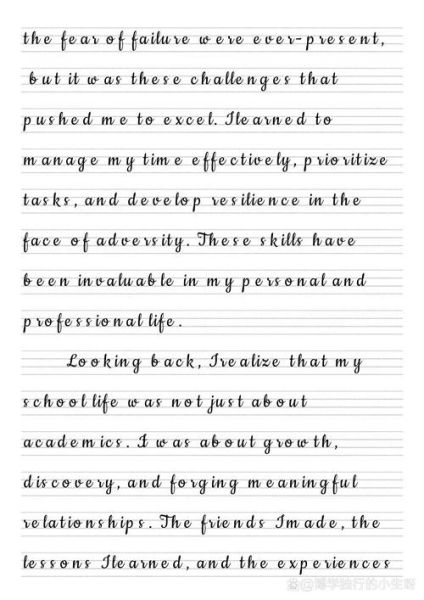 the fear of failure were ever-present,
but it was these challenges that
pushed me to excel. I learned to
manage my time effectively, prioritize
tasks, and develop resilience in the
face of adversity. These skills have
been invaluable in my personal and
professional life.
Looking back, I realize that my
school life was not just about
academics. I was about growth,
discovery, and forging meaningful
relationships. The friends I made, the
lessons I learned, and the experiences
@博学独行的小生啊